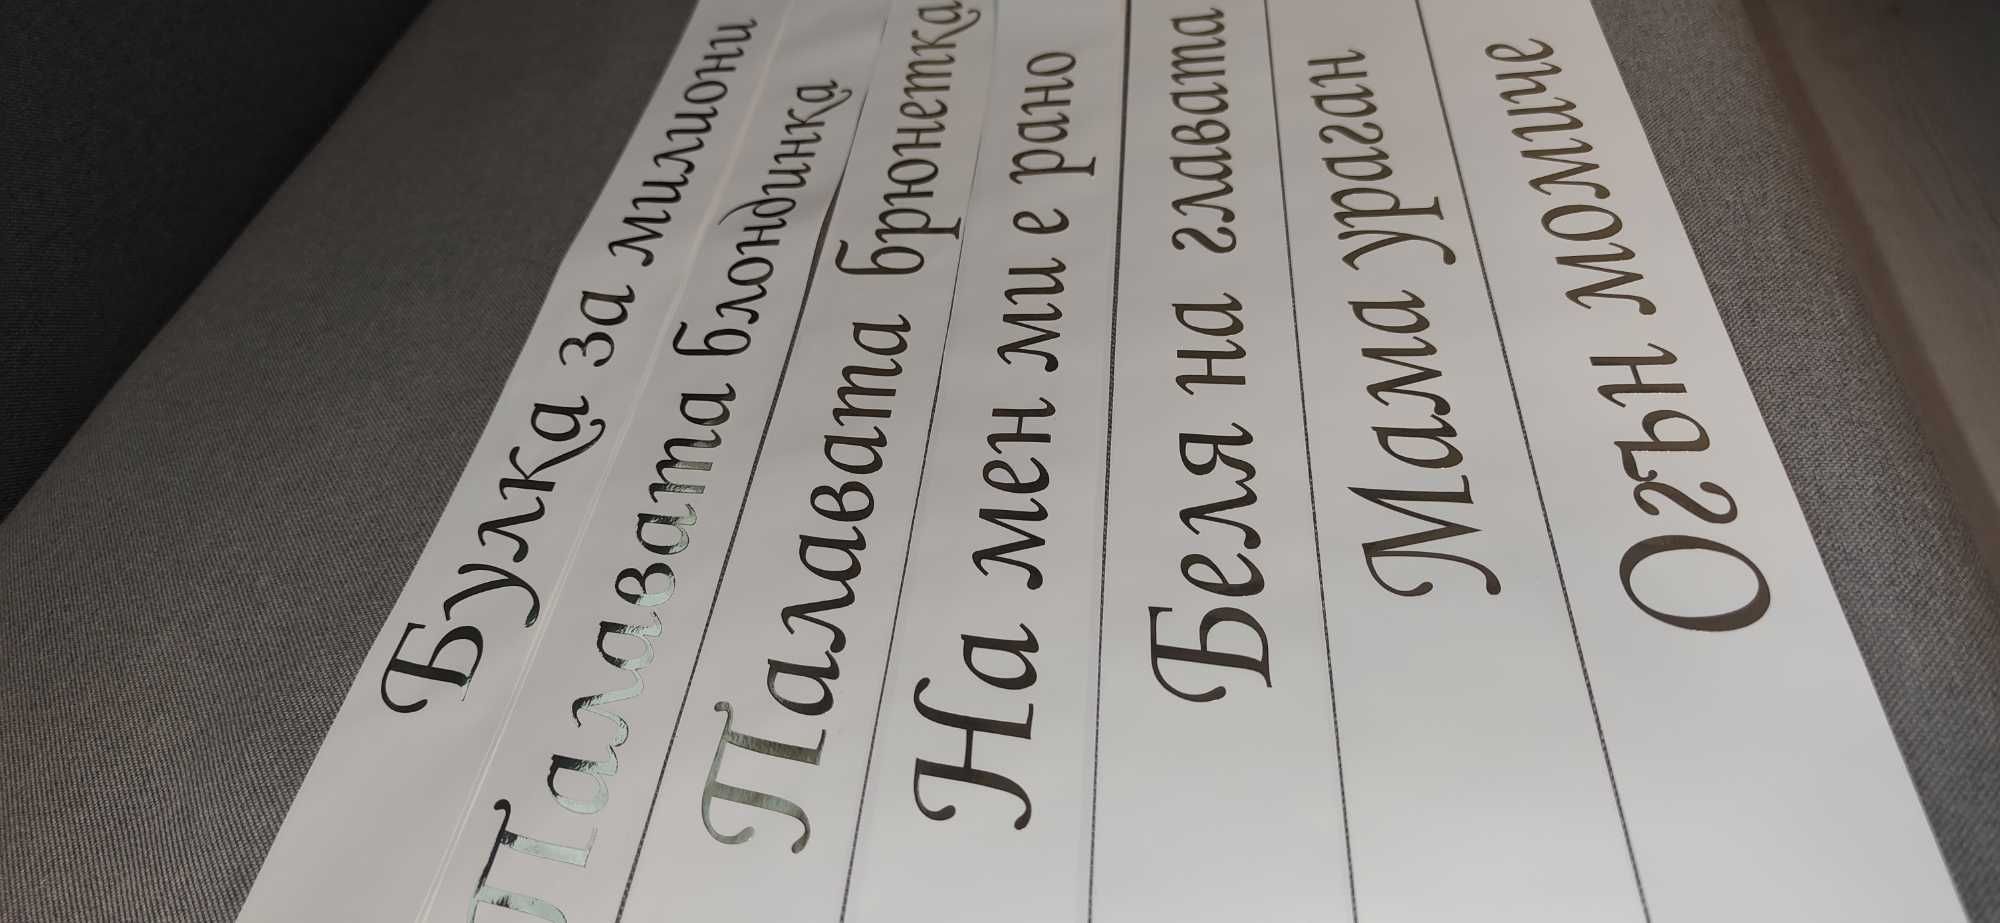 Булка за милиони
Палавата блондинка
Палавата брюнетка
На мен ми е рано
Беля на главата
Мама Ураган
Огън момиче